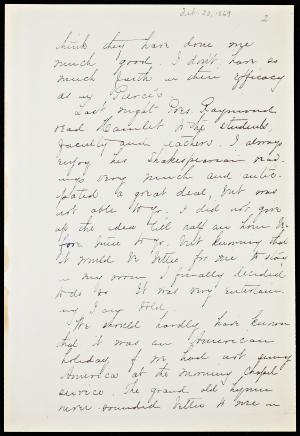 Feb. 22, 1869
2
think they have done me
much good. I don't have so
much faith in their efficacy
as in Pierce's.
Last night Pres. Raymond
read Hamlet to the students,
faculty and teachers. I always
enjoy his Shakespearian read-
ings very much and antici-
pated a great deal, but was
not able to go. I did not give
up the idea till half an hour be-
fore time to go, but knowing that
it would be better for me to stay
in my room I finally decided
to do so. It was very entertain-
ing I am told.
We should hardly have known
that it was an American
holiday, if we had not sung
America at the morning Chapel
service. The grand old hymn
never sounded better to me in